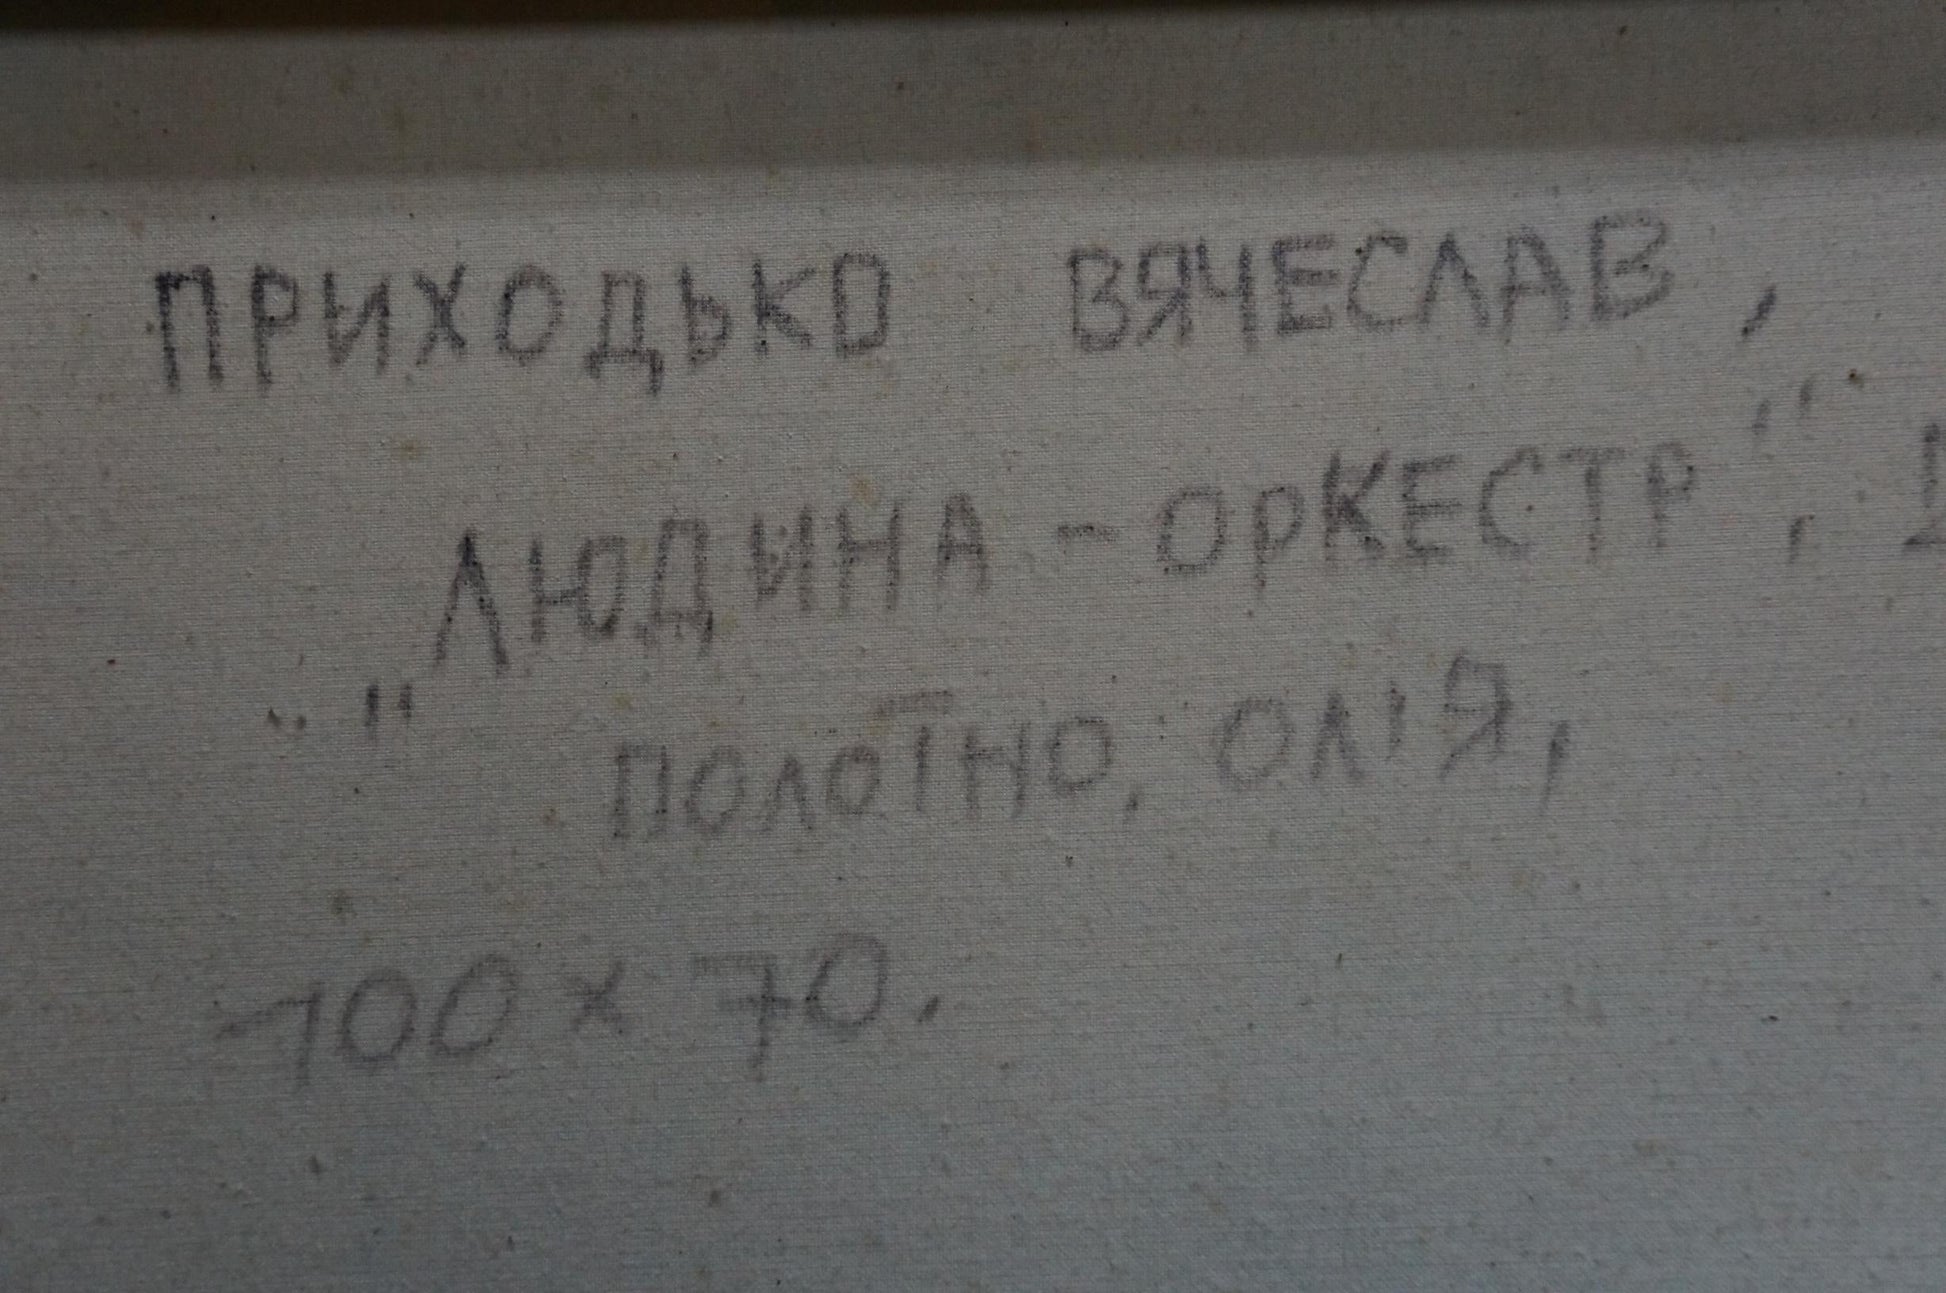 ПРИХОДЬКО ВЯЧЕСЛАВ,
"ЛЮДИНА - ОРКЕСТР",
ПОЛОТНО, ОЛІЯ,
100 x 70.